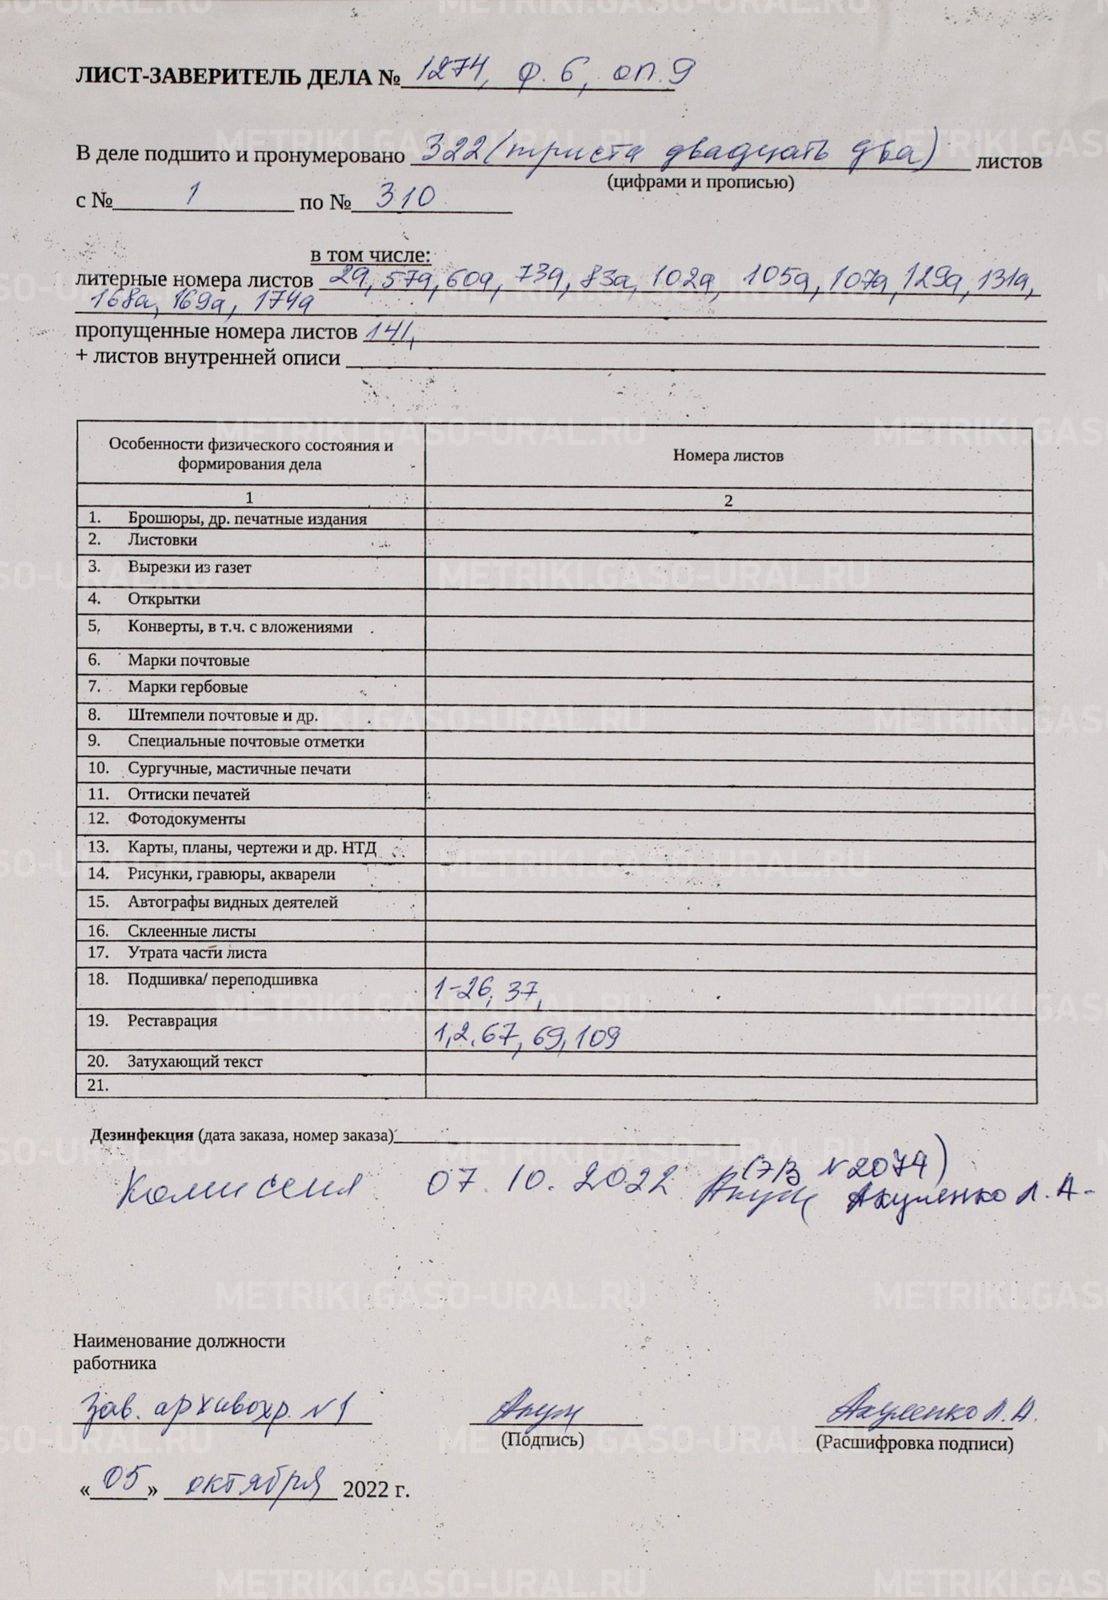 ЛИСТ-ЗАВЕРИТЕЛЬ ДЕЛА № 1274, ф. 6, оп. 9
В деле подшито и пронумеровано 322 (триста двадцать два) листов
(цифрами и прописью)
с № 1 по № 310
в том числе:
литерные номера листов 2а, 57а, 60а, 73а, 83а, 102а, 105а, 107а, 129а, 131а,
168а, 169а, 174а
пропущенные номера листов 141,
+ листов внутренней описи
Особенности физического состояния и формирования дела Номера листов
1 2
1. Брошюры, др. печатные издания
2. Листовки
3. Вырезки из газет
4. Открытки
5. Конверты, в т.ч. с вложениями
6. Марки почтовые
7. Марки гербовые
8. Штемпели почтовые и др.
9. Специальные почтовые отметки
10. Сургучные, мастичные печати
11. Оттиски печатей
12. Фотодокументы
13. Карты, планы, чертежи и др. НТД
14. Рисунки, гравюры, акварели
15. Автографы видных деятелей
16. Склеенные листы
17. Утрата части листа
18. Подшивка/ переподшивка 1-26, 37,
19. Реставрация 1,2, 67, 69, 109
20. Затухающий текст
21.
Дезинфекция (дата заказа, номер заказа)
(Э/З №2074)
Комиссия 07.10.2022 Акуленко Л.А.
Наименование должности
работника
Зав. архивохр. №1 Акуленко Л.А.
(Подпись) (Расшифровка подписи)
«05» октября 2022 г.
METRIKI.GASO-URAL.RU